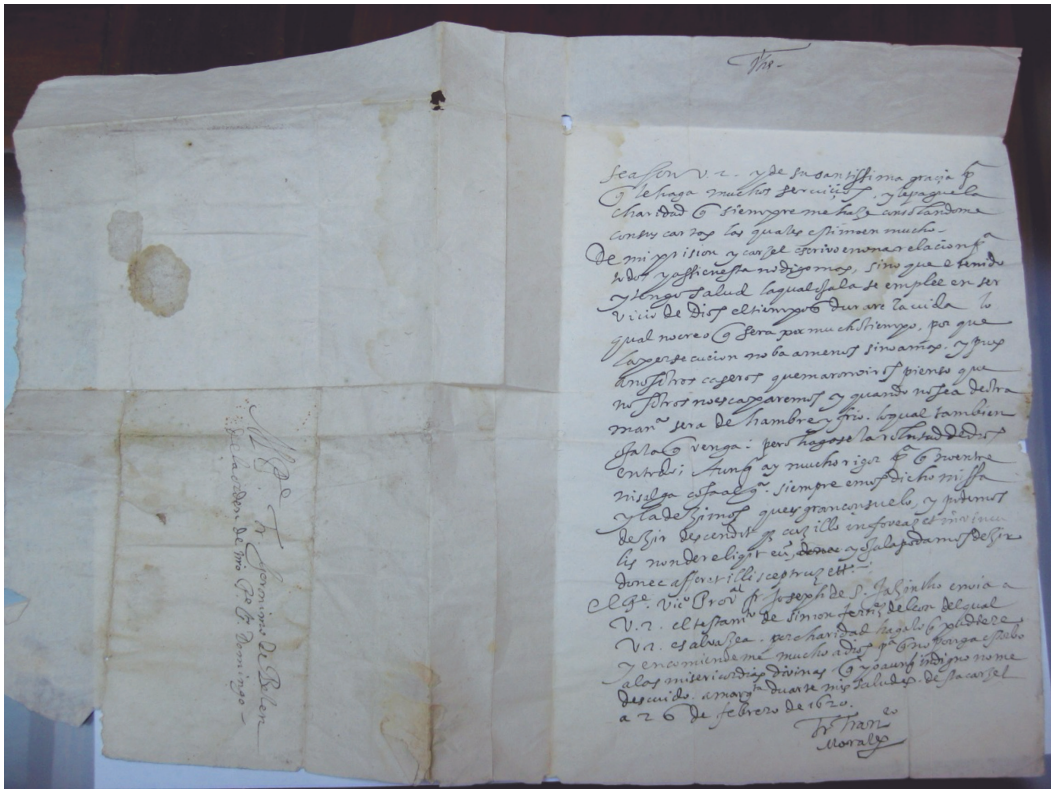 Jhs
sea con V. R. y de su santissima gracia pª
q̃ le haga muchos servicios, y le pague la
charidad q̃ siempre me haze consolandome
con sus cartas las quales estimo en mucho.
De mi prision y carsel escrivo en una relacion pª
todos y assi en esta no digo mas, sino que e tenido
y tengo salud laqual ojala se emplee en ser
vicio de Dios el tiempo q̃ durare la vida lo
qual no creo q̃ sera por mucho tiempo, por que
la persecucion no ba a menos sino a mas, y pues
a nosotros caseros quemaron vivos pienso que
nosotros no escaparemos y quando no sea de otra
manª sera de hambre y frio. lo qual tambien
ojala q̃ venga: pero hagase la voluntad de dios
en todo; aunq̃ ay mucho rigor pª q̃ no entre
ni salga cosa algª. siempre emos dicho missa
y la dezimos ques gran consuelo, y podemos
dezir descendit cũ illo in foveã et in vincu
lis non dereliqit eũ, y ojala podamos dezir
donec afferret illi sceptrũ ett.
El Pe. Vicº Provªl fr Joseph de S. Jazintho envia a
V. R. el testamº de simon fernz de leon del qual
V. R. es alvazea. por charidad hagalo q̃ pudiere
y encomiendeme mucho a dios pª q̃ no ponga estorbo
a las misericordias divinas q̃ yo aunq̃ indigno no me
descuido. a marqin duarte mis saludes. de sta carsel
a 26 de febrero de 1620.
Fr. Franco
Morales
Al Pe. Fr. Geronimo de Belen
de la orden de nro Pe. S. Domingo